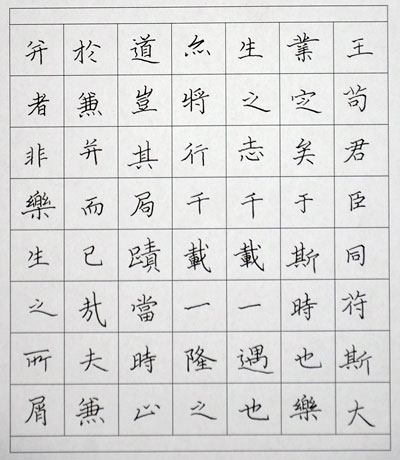 王苟君臣同苻斯大
業定矣于斯時也樂
生之志千載一遇也
亦将行千載一隆之
道豈其局蹟當時止
於兼并而已哉夫兼
并者非樂生之所屑